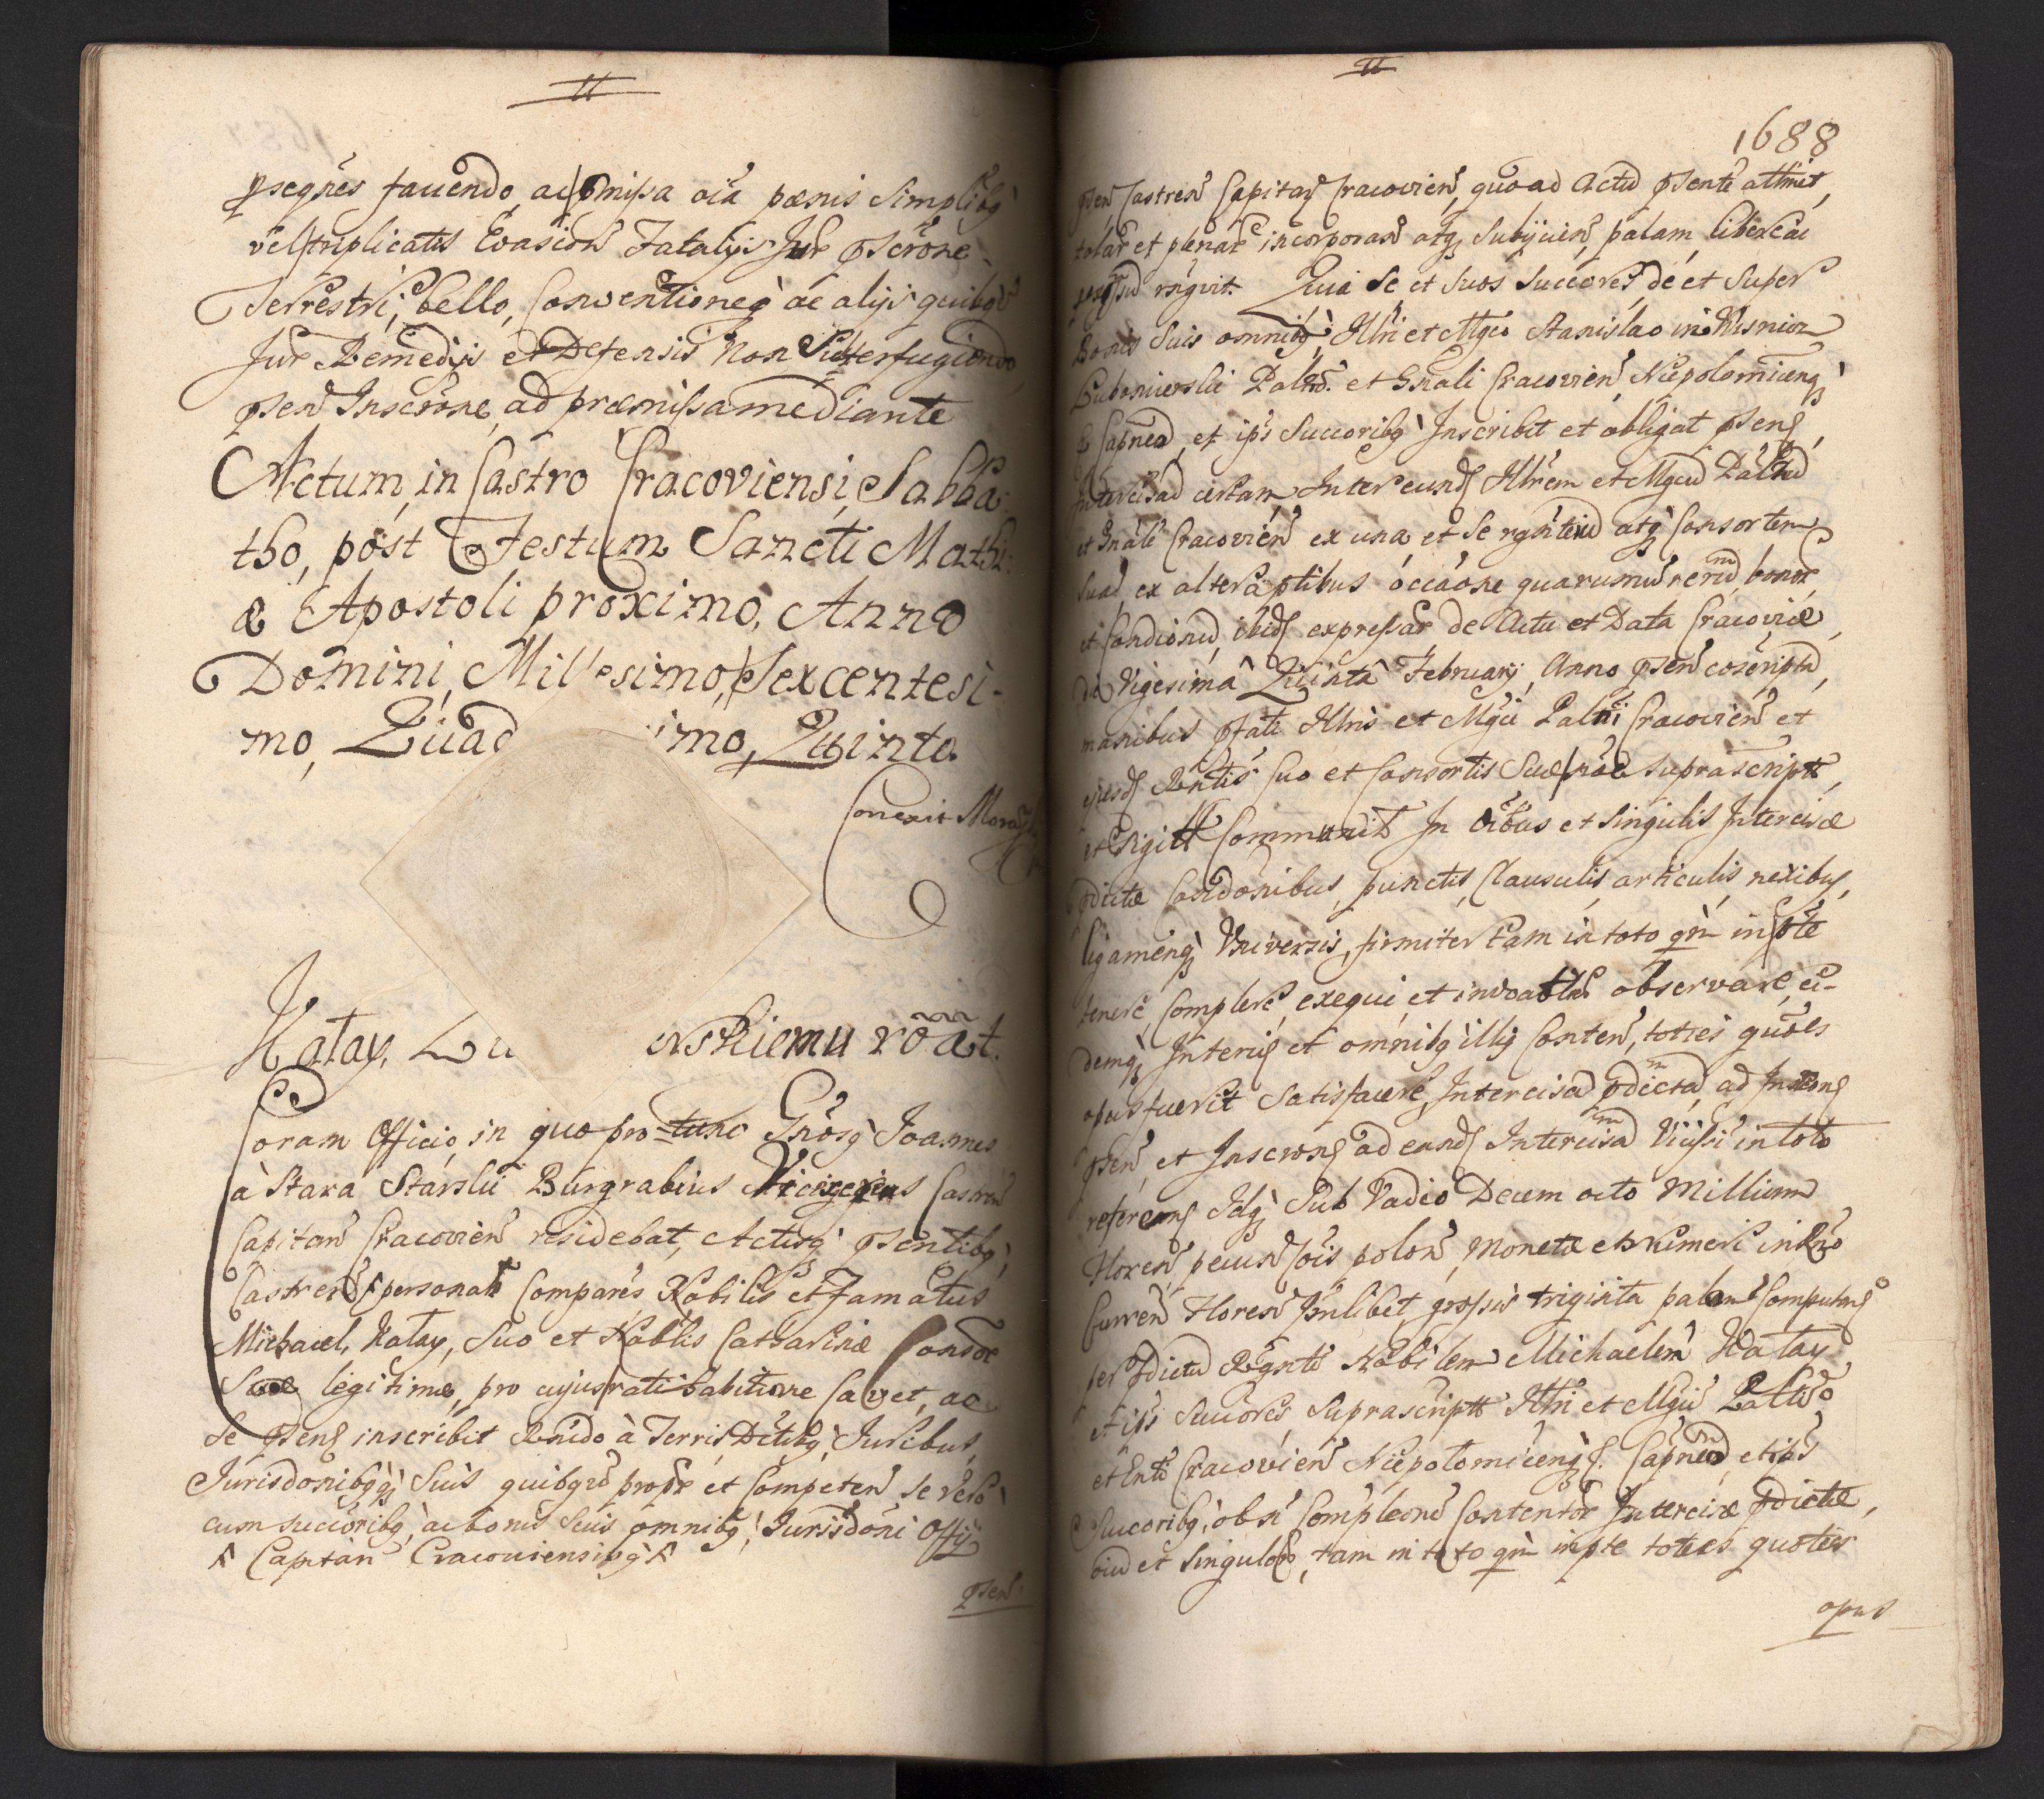 II
ꝓseqñes fauendo, ac omissa oia pænis Simplibq
vel triplicatis Evasion Fatalijs Jur pscrone
Terrestri, bello, Conventioneq ac alijs quibqv
Jur Remedijs et Defensis non Subterfugiendo
psen Inscrone, ad præmissa mediante
Actum, in Castro Cracoviensi, Sabba:
tho, post Festum Sancti Mathi:
æ Apostoli proximo, Anno
Domini, Millesimo, Sexcentesi-
mo, Quad imo, Quinto
Conexit
Katay, Lu erskiemu roat.
Coram Officio, in quo pro tunc Gnosq Joannes
à Stara Starslii Burgrabius Vicegerens Castren
Capitan Cracovien residebat, Actisq psentibq,
Castren personalr Comparés Nobilis et Famatus
Michael, Katay, Suo et Nobilis Catharinæ Consor
Suæ legitimæ, pro cujus ratihabitione Cavet, ac
Se psens inscribit Rnido à Terris Dtibq, Juribus
Jurisdonibqq Suis quibqvd propr et Competen se vero
cum succoribq, ac bonis Suis omnibq, Jurisdoni Offij
^ Capitan Cracoviensibq ^
psen
II
1688
psen Castren Capitan Cracovien, quo ad Actu psente attinet,
totar et plenar incorporan atq Subijcien, palam, libere ac
rngvit. Quia Se et Suos Succores, de et Super
Bonis Suis omnibq, Illri et Mgco Stanislao in Wisnicz
Lubomierslii Paltno. et Gnali Cracovien, Niepolomicenq
& Capneo, et ips Succoribq Inscribit et obligat psens,
Intercisad certam, Inter eund Illrem et Mgcu Paltnu
et Gnale Cracovien ex una, et Se rgntend atq Consortem
Suad, ex altera ptibus occaone quarumvis rerum, bonor
et Condionu, ibid expressar de Actu et Data Cracoviæ
die Vigesimâ Quintâ February, Anno psen coscripta,
manibus pfati Illris et Mgci Paltni Cracovien et
ejusd Rntis suo et Consortis Suæ noie suprascriptt,
et Sigill Communit In oibus et Singulis Intercisæ
pdictæ Condonibus, punctis, Clausulis, articulis nexibus,
ligamenq Vniversis, firmiter tam in toto qm in pte
tenere Complere, exequi, et inviolablr observare, ei-
demq Intercis et omnibq illis Conten, toties quoties
opus fuerit Satisfacere, Intercisam pdictam, ad Inscrons
psen, et Inscrons ad eand Intercisam Vicissi in toto
referens Idq Sub Vadio Decem octo Millium
Floren, pecun cois polon, Monetæ et Numeri in Rno
Curren Floren qmlibet, grossis triginta polon Computans
per pdictu Rgnte Nobilem Michaelem Katay
et ips Succores, Suprascriptt Illri et Mgco Paltno
et Gnli Cracovien Niepolomicenq & Capneo, et ibs
Succoribq, ob n Compleone Contentor Intercisæ pdictæ,
oiu et Singulor, tam in toto qm in pte toties quoties
opus